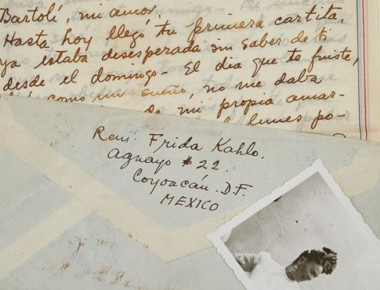 Bartolí, mi amor.
Hasta hoy llegó tu primera cartita.
ya estaba desesperada sin saber de ti
desde el domingo. El dia que te fuiste,
como un sueño, no me daba
mi propia amar-
lunes po-
Rem. Frida Kahlo.
Aguayo # 22.
Coyoacán. D.F.
MEXICO